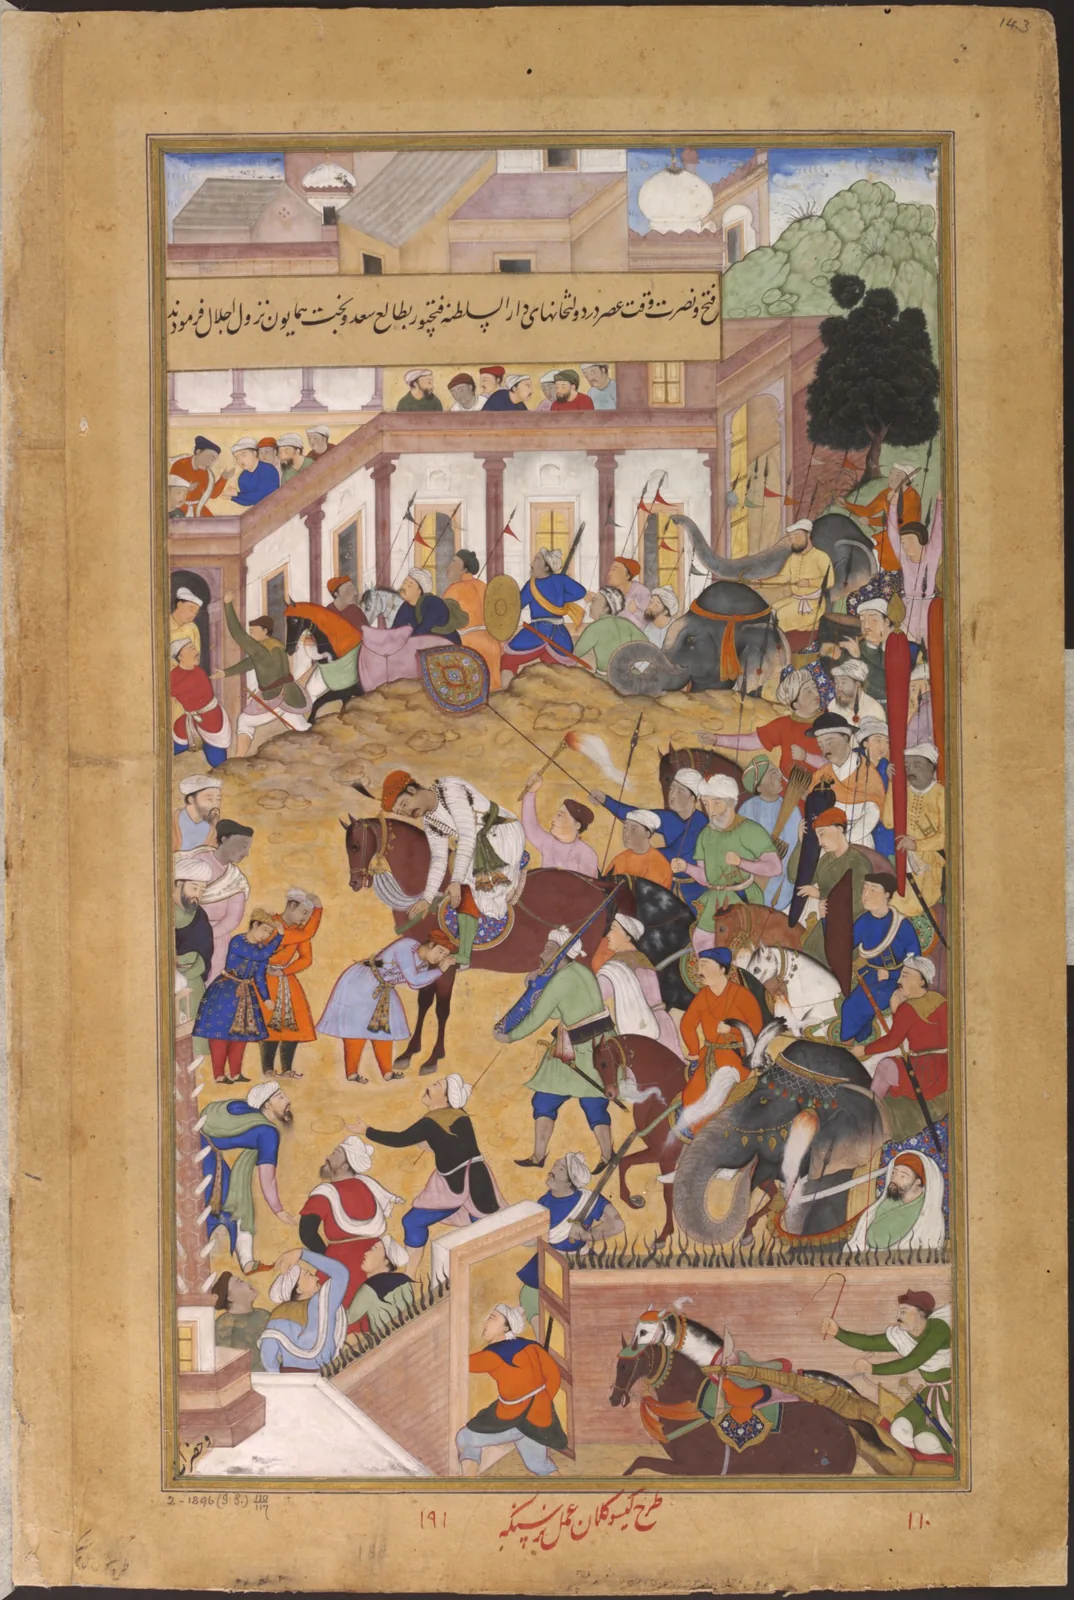 143
فتح و نصرت وقت عصر در دولتخانهای دار السلطنه فتحپور بطالع سعد و بخت همایون نزول اجلال فرمودند
2-1896 (I.S.) 110/117
۱۹۱
طرح کیسو کلان عمل نرسینگه
۱۱۰